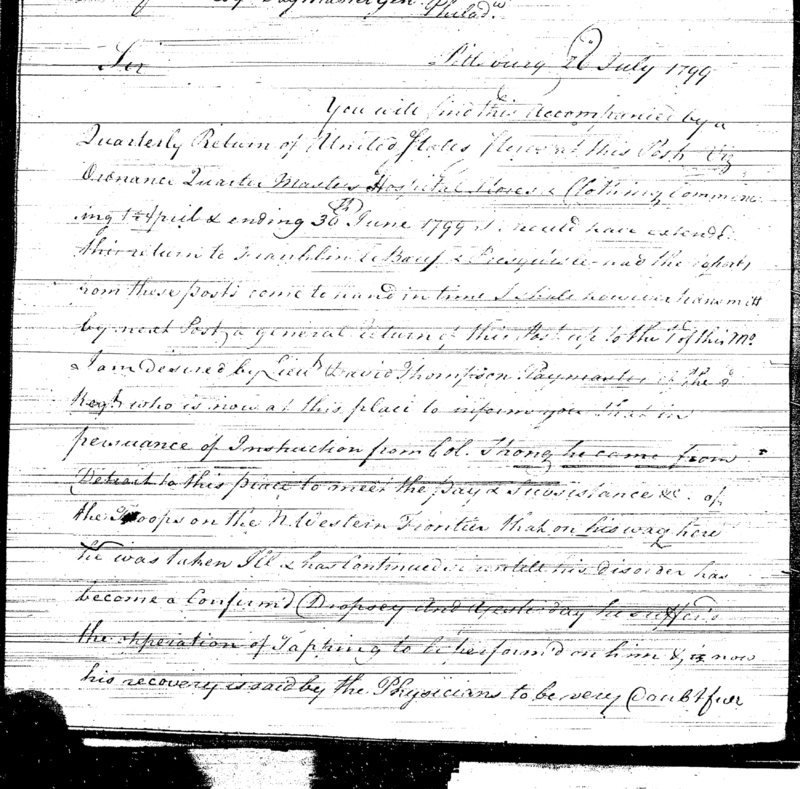 by Paymaster Gen.
Philad.
Sir Pittsburg 26 July 1799
You will find this accompanied by a
Quarterly Return of United States Stores at this Post Viz
Ordnance Quarter Masters Hospital Stores & Clothing Commenc
ing 1st April & ending 30th June 1799 I would have extend
this return to Franklin LeBeuf & Presquisle had the reports
from these posts come to hand in time I shall however transmitt
by next Post a general return of this Post up to the 1st of this Mo.
& I am desired by Lieut David Thompson Paymaster of the 2
Regt who is now at this place to inform you that in
persuance of Instruction from Col. Strong he came from
Detroit to this place to meet the pay & Subsistance &c. of
the Troops on the N. Western Frontier that on his way here
he was taken Ill & has Continued untill his disorder has
become a Confirmd Dropsey and yesterday he suffer'd
the opperation of Tapping to be perform'd on him & is now
his recovery is said by the Physicians to be very Doubtfull